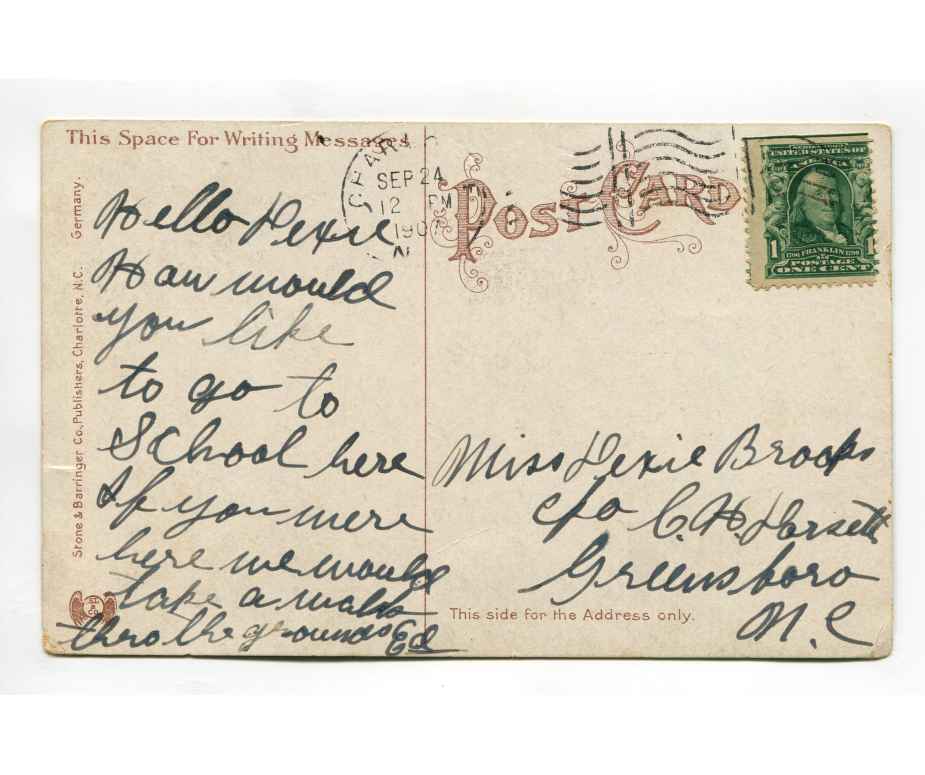 This Space For Writing Messages
SEP 24
12 PM
1907
N
POST CARD
SERIES 1902
UNITED STATES OF
AMERICA
1
1
1706 FRANKLIN 1790
POSTAGE
ONE CENT
Stone & Barringer Co., Publishers, Charlotte, N.C. Germany.
Hello Dexie
How would
you like
to go to
School here
If you were
here we would
take a walk
thro the grounds Ed
Miss Dexie Brooks
c/o C. H. Dorsett
Greensboro
N.C
This side for the Address only.